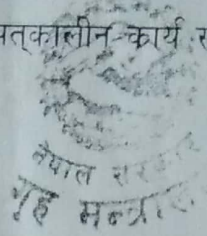 पत्कालीन कार्य स
नेपाल सरकार
गृह मन्त्राल